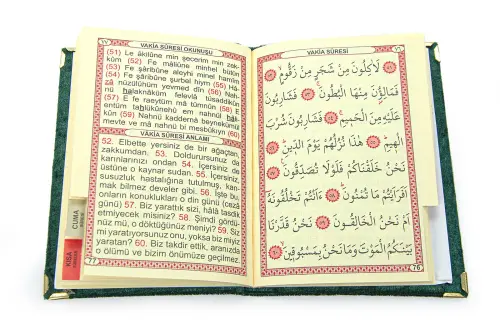 VAKİA SÛRESİ OKUNUŞU
(51) Le âkilûne min şecerim min zak-
kûm (52) Fe mâliûne minhel bütûn
(53) Fe şâribûne aleyhi minel hamîm
(54) Fe şâribûne şurbel hiym (55) Hâ-
zâ nüzülühüm yevmed dîn (56) Nah-
nü halaknâküm felevlâ tüsaddikûn
(57) E fe raeytüm mâ tümnûn (58) E
entüm tahlükûnehû em nahnül hâli-
kûn (59) Nahnü kaddernâ beynekümül
mevte ve mâ nahnü bi mesbûkîyn (60)
VAKİA SÛRESİ ANLAMI
52. Elbette yersiniz de bir ağaçtan,
zakkumdan. 53. Doldurursunuz da
karınlarınızı ondan 54. İçersiniz de
üstüne o kaynar sudan. 55. İçersiniz
susuzluk hastalığına tutulmuş, kan-
mak bilmez develer gibi. 56. İşte bu,
onların konuklukları o din günü (ceza
günü) 57. Biz yarattık sizi, hâlâ tasdik
etmiyecek misiniz? 58. Şimdi gördü-
nüz mü, o döktüğünüz meniyi? 59. Siz
mi yaratıyorsunuz onu, yoksa biz miyiz
yaratan? 60. Biz takdir ettik, aranızda
o ölümü ve bizim önümüze geçilmez.
77
CUMA
KISA
VAKIA SÛRESİ
لَاٰكِلُونَ مِنْ شَجَرٍ مِنْ زَقُّومٍ
فَمَالِؤُ۫نَ مِنْهَا الْبُطُونَ فَشَارِبُونَ
عَلَيْهِ مِنَ الْحَمِيمِ فَشَارِبُونَ شُرْبَ
الْهِيمِ هٰذَا نُزُلُهُمْ يَوْمَ الدِّينِ
نَحْنُ خَلَقْنَاكُمْ فَلَوْلَا تُصَدِّقُونَ
اَفَرَاَيْتُمْ مَا تُمْنُونَ ءَاَنْتُمْ تَخْلُقُونَهُٓ
اَمْ نَحْنُ الْخَالِقُونَ نَحْنُ قَدَّرْنَا
بَيْنَكُمُ الْمَوْتَ وَمَا نَحْنُ بِمَسْبُوقِينَ
76